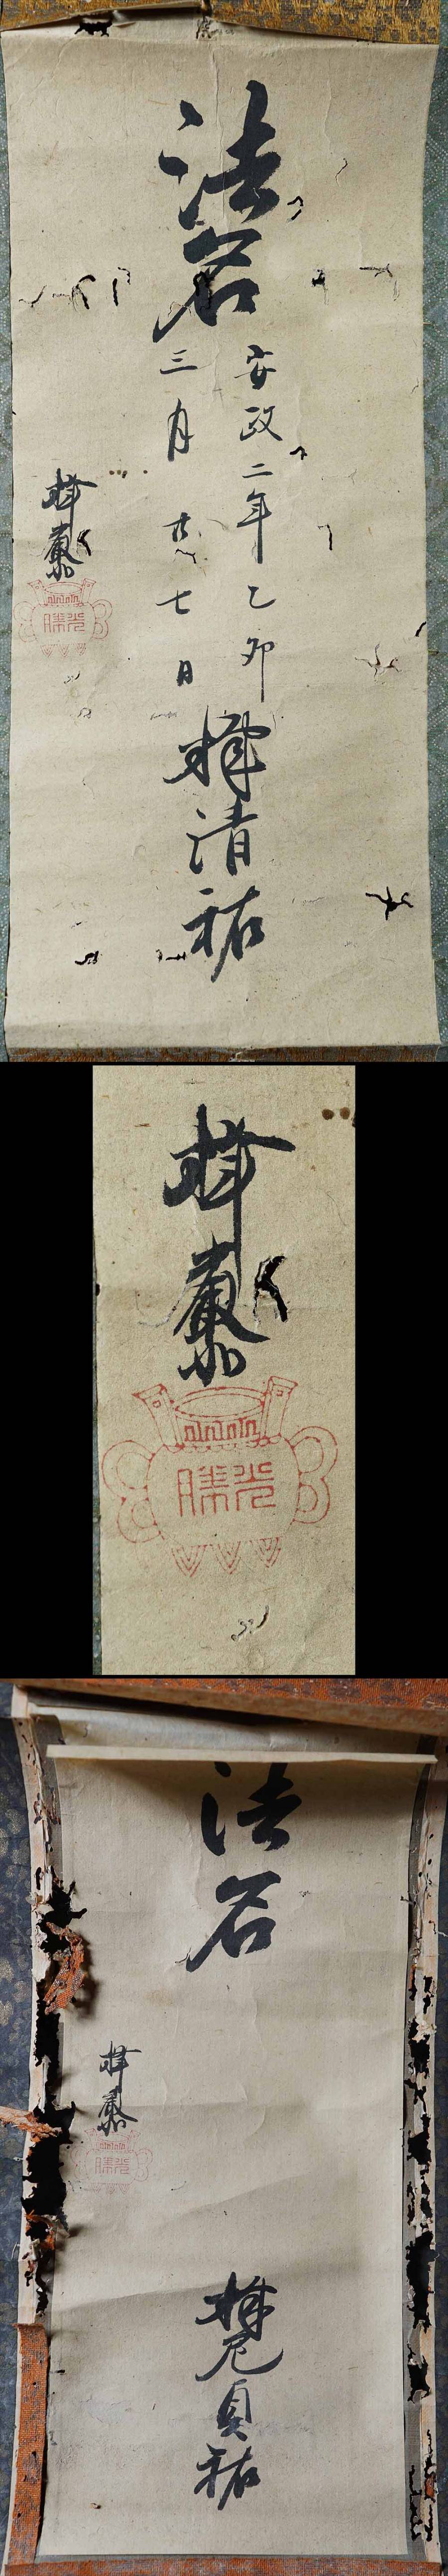 法名
安政二年乙卯
三月廿七日
釋清祐
釋
光勝
釋
光勝
法名
釋
光勝
釋尼貞祐